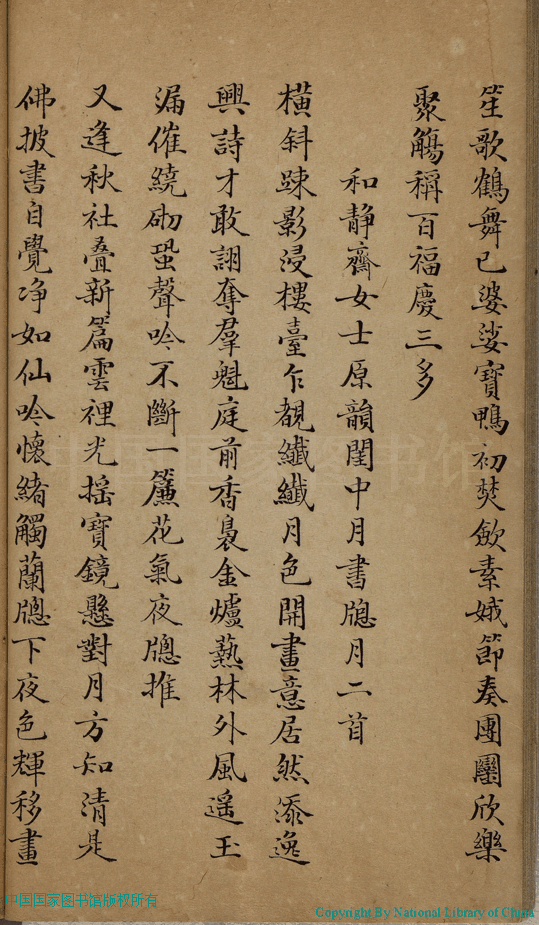 笙歌鶴舞已婆娑寶鴨初焚飲素娥節奏團圞欣樂
聚觴稱百福慶三多
和靜齋女士原韻閨中月書牕月二首
橫斜踈影浸樓臺乍覩纖纖月色開畫意居然添逸
興詩才敢詡奪羣魁庭前香裊金爐爇林外風遥玉
漏催繞砌蛩聲吟不斷一簾花氣夜牕推
又逢秋社疊新篇雲裡光摇寶鏡懸對月方知清是
佛披書自覺净如仙吟懷緒觸蘭牕下夜色輝移畫
中国国家图书馆
中国国家图书馆版权所有
Copyright By National Library of China